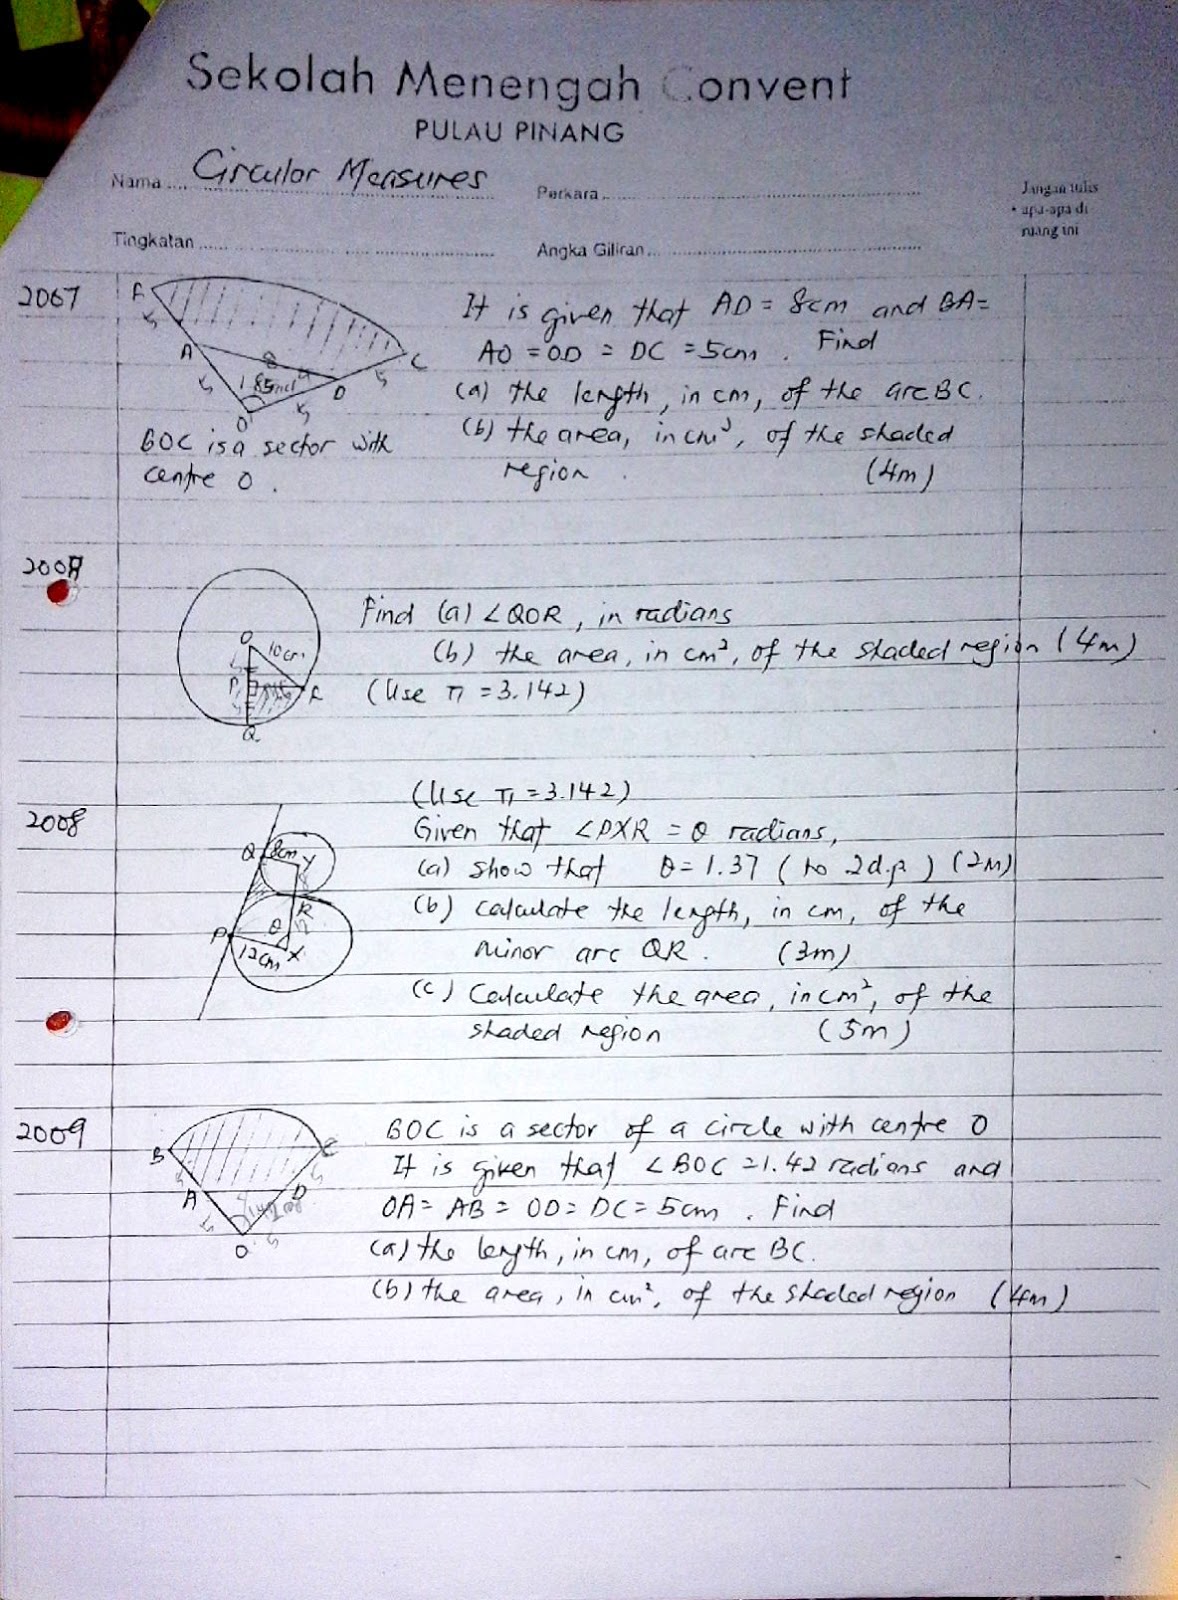 Sekolah Menengah Convent
PULAU PINANG
Nama .... Circular Measures
Perkara
Jangan tulis
apa-apa di
ruang ini
Tingkatan
Angka Giliran
2067
A
5
A
8
C
5
D
1.85rad
5
5
O
BOC is a sector with
centre O.
It is given that AD = 8cm and BA =
AO = OD = DC = 5cm. Find
(a) the length, in cm, of the arc BC.
(b) the area, in cm², of the shaded
region. (4m)
O
10cm
P
R
Q
Find (a) ∠QOR, in radians
(b) the area, in cm², of the shaded region (4m)
(Use π = 3.142)
2008
Q
8cm
Y
R
P
θ
12
12cm
X
(Use π = 3.142)
Given that ∠PXR = θ radians,
(a) show that θ = 1.37 (to 2d.p) (2M)
(b) calculate the length, in cm, of the
minor arc QR. (3m)
(c) Calculate the area, in cm², of the
shaded region (5m)
2009
B
C
5
5
A
D
5
5
O
BOC is a sector of a circle with centre O
It is given that ∠BOC = 1.42 radians and
OA = AB = OD = DC = 5cm. Find
(a) the length, in cm, of arc BC.
(b) the area, in cm², of the shaded region (4m)